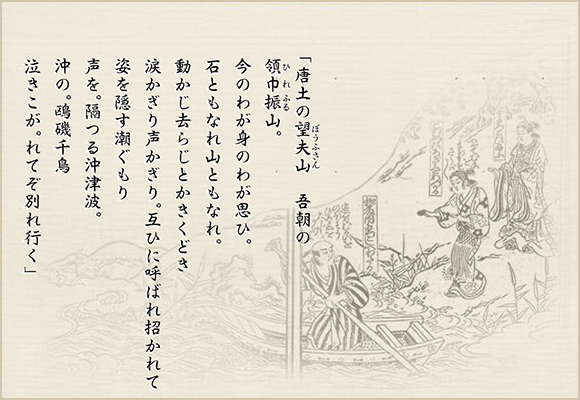 「唐土の望夫山　吾朝の
領巾振山。
今のわが身のわが思ひ。
石ともなれ山ともなれ。
動かじ去らじとかきくどき
涙かぎり声かぎり。互ひに呼ばれ招かれて
姿を隠す潮ぐもり
声を。隔つる沖津波。
沖の。鴎磯千鳥
泣きこが。れてぞ別れ行く」
ぼうふさん
ひれふる